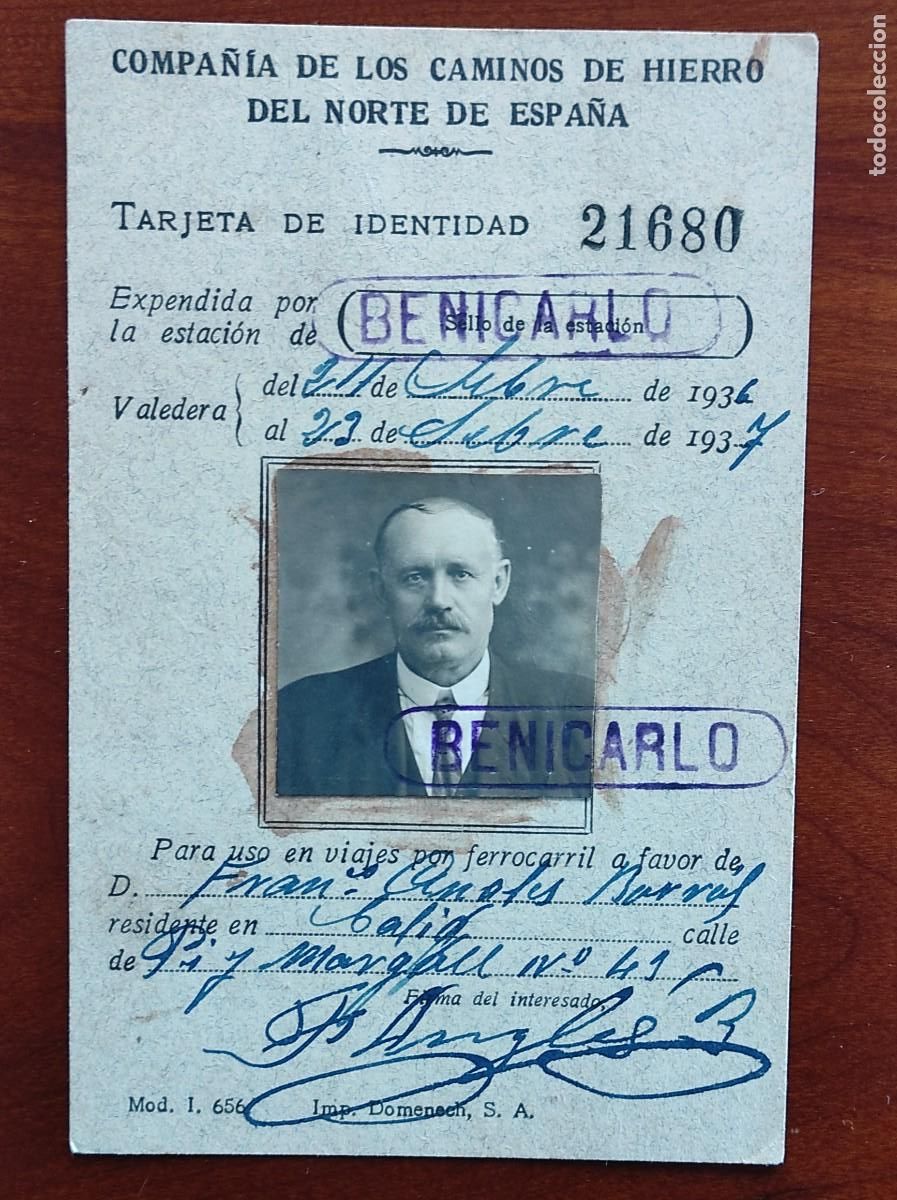 COMPAÑÍA DE LOS CAMINOS DE HIERRO
DEL NORTE DE ESPAÑA
TARJETA DE IDENTIDAD 21680
Expendida por
la estación de
Sello de la estación
BENICARLO
Valedera
del de de 1936
al 23 de de 1937
BENICARLO
Para uso en viajes por ferrocarril a favor de
D. Fran.º Anglés Borrás
residente en Calig calle
de Pi y Margall Nº 41
Firma del interesado,
F Anglés B
Mod. I. 656 Imp. Domenech, S. A.
todocoleccion